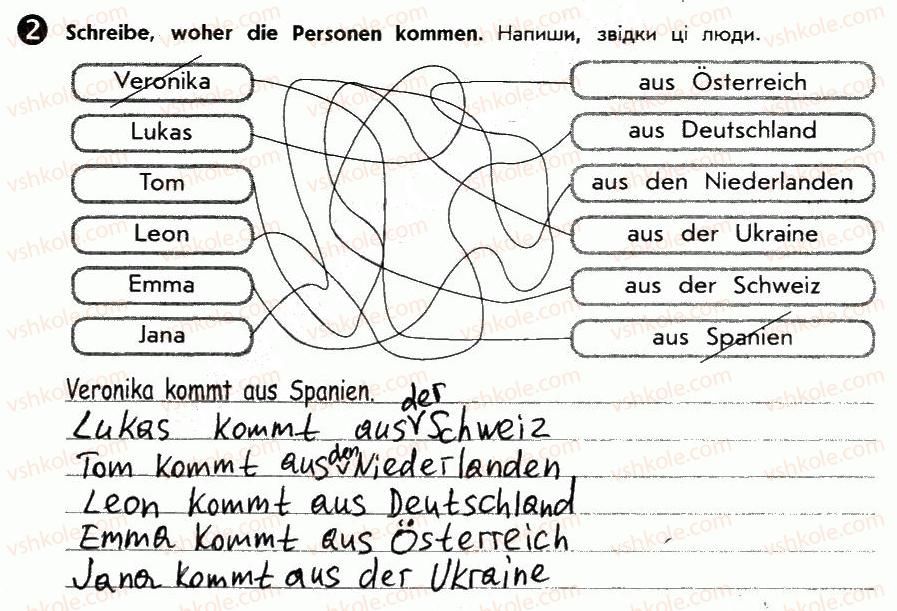 2 Schreibe, woher die Personen kommen. Напиши, звідки ці люди.
Veronika
aus Österreich
Lukas
aus Deutschland
Tom
aus den Niederlanden
Leon
aus der Ukraine
Emma
aus der Schweiz
Jana
aus Spanien
Veronika kommt aus Spanien.
Lukas kommt aus der Schweiz
Tom kommt aus den Niederlanden
Leon kommt aus Deutschland
Emma kommt aus Österreich
Jana kommt aus der Ukraine
vshkole.com